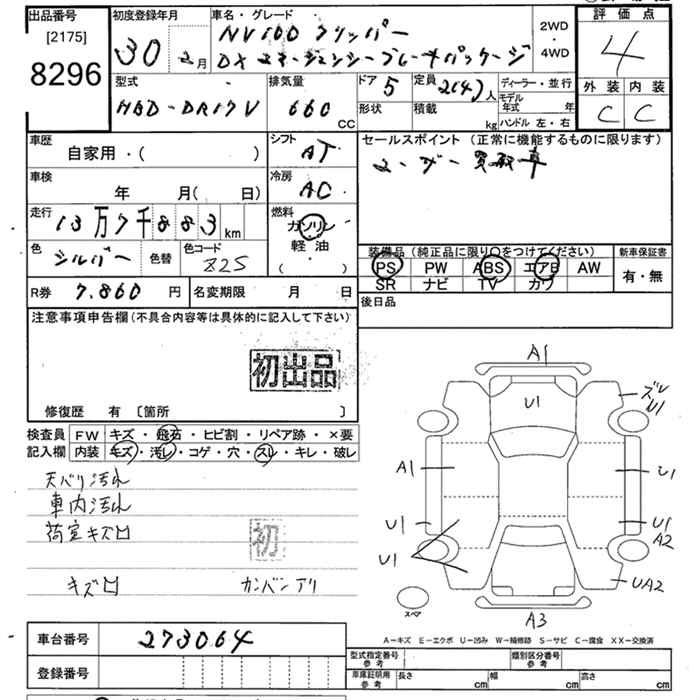 出品番号
[2175]
8296
初度登録年月
30 2月
車名・グレード
NV100 クリッパー
DX エマージェンシーブレーキパッケージ
2WD
・
4WD
評価点
4
外装 内装
C C
型式
HBD-DR17V
排気量
660 CC
ドア 5
定員 2(4)人
形状
積載 kg
ディーラー・並行
モデル年式 年
ハンドル 左・右
車歴
自家用・( )
シフト
AT
セールスポイント (正常に機能するものに限ります)
ユーザー買取車
車検
年 月( 日)
冷房
AC
走行
13万7千883km
燃料
ガソリン
軽油
( )
色
シルバー
色替
色コード
Z2S
装備品(純正品に限り○をつけてください)
PS PW ABS エアB AW
SR ナビ TV カワ
新車保証書
有・無
R券 7.860 円
名変期限 月 日
後日品
注意事項申告欄(不具合内容等は具体的に記入して下さい)
初出品
修復歴 有 〔箇所 〕
検査員
記入欄
FW キズ・飛石・ヒビ割・リペア跡・×要
内装 キズ・汚レ・コゲ・穴・スレ・キレ・破レ
天バリ汚れ
車内汚れ
荷室キズ凹
初
キズ凹 カンバンアリ
A1
U1
ズレ
U1
A1
U1
U1
U1
A2
U1
UA2
スペア
A3
A-キズ E-エクボ U-凹み W-補修跡 S-サビ C-腐食 XX-交換済
車台番号 273064
登録番号
型式指定番号
参考
類別区分番号
参考
車庫証明用
参考
長さ cm 幅 cm 高さ cm